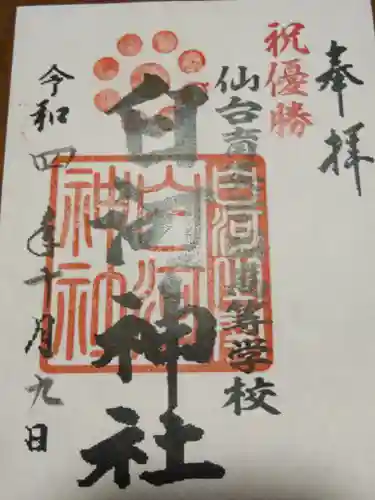 奉拝
祝優勝
仙台育英学園高等学校
白河神社
令和四年十月九日
白河神社